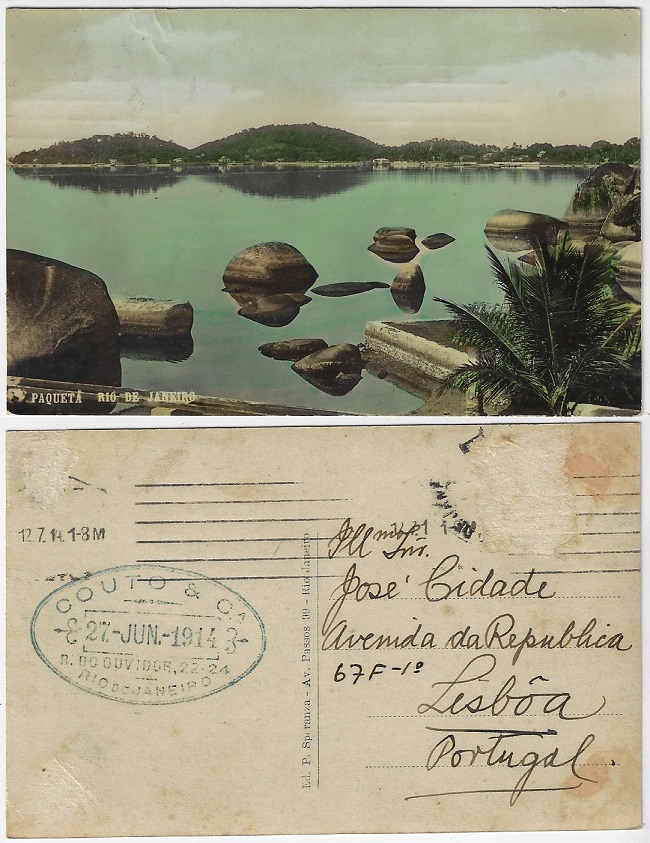 PAQUETÁ RIO DE JANEIRO
12.7.14. 1-8M
COUTO & Cª
27.-JUN.-1914
R. DO OUVIDOR, 22-24
RIO DE JANEIRO
Ed. P. Speranza - Av. Passos 99 - Rio Janeiro
Illmo Snr.
José Cidade
Avenida da Republica
67F-1º
Lisbôa
Portugal.